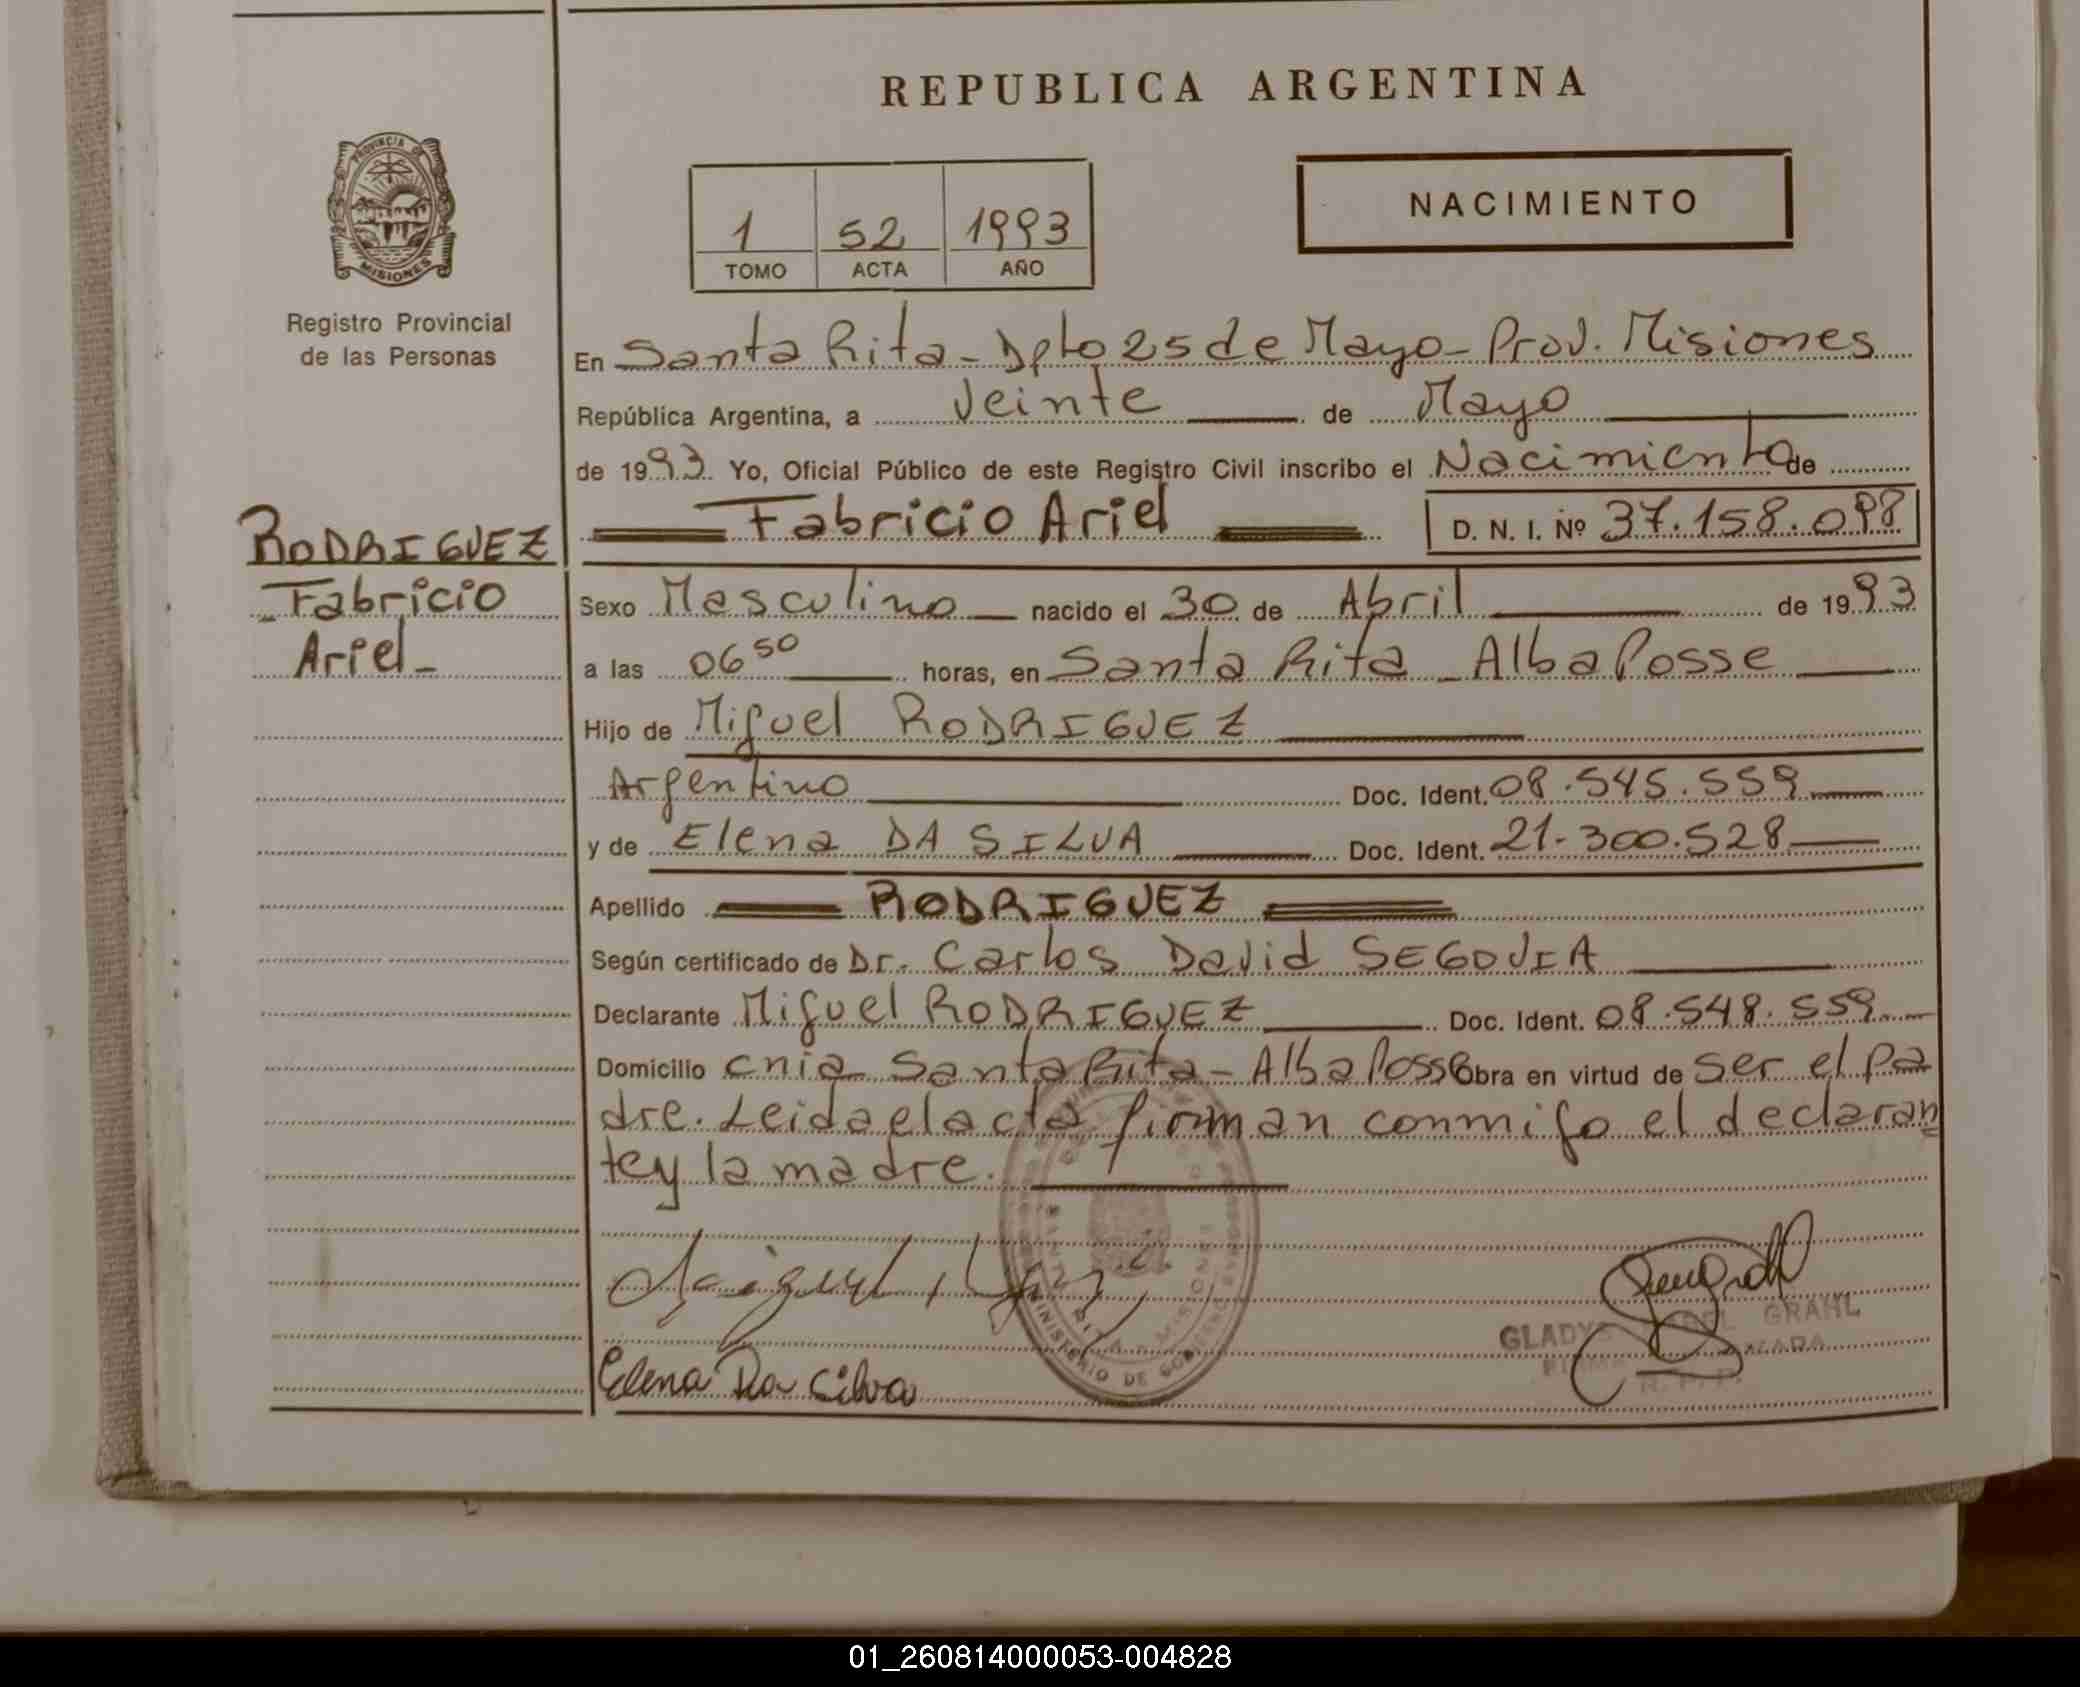 REPUBLICA ARGENTINA
PROVINCIA DE
MISIONES
Registro Provincial
de las Personas
1 52 1993
TOMO ACTA AÑO
NACIMIENTO
En Santa Rita - Dpto 25 de Mayo - Prov. Misiones
República Argentina, a Veinte de Mayo
de 1993 Yo, Oficial Público de este Registro Civil inscribo el Nacimiento de
Fabricio Ariel D. N. I. Nº 37.158.098
RODRIGUEZ
Fabricio
Ariel-
Sexo Masculino nacido el 30 de Abril de 1993
a las 06 50 horas, en Santa Rita - Alba Posse
Hijo de Miguel RODRIGUEZ
Argentino Doc. Ident. 08.545.559
y de Elena DA SILVA Doc. Ident. 21-300.528
Apellido RODRIGUEZ
Según certificado de Dr. Carlos David SEGOVIA
Declarante Miguel RODRIGUEZ Doc. Ident. 08.548.559
Domicilio cnia Santa Rita - Alba Posse Obra en virtud de ser el pa
dre. Leida el acta firman conmigo el declaran
te y la madre.
MINISTERIO DE GOBIERNO
Elena Da Silva
GLADYS GRAHL
01_260814000053-004828